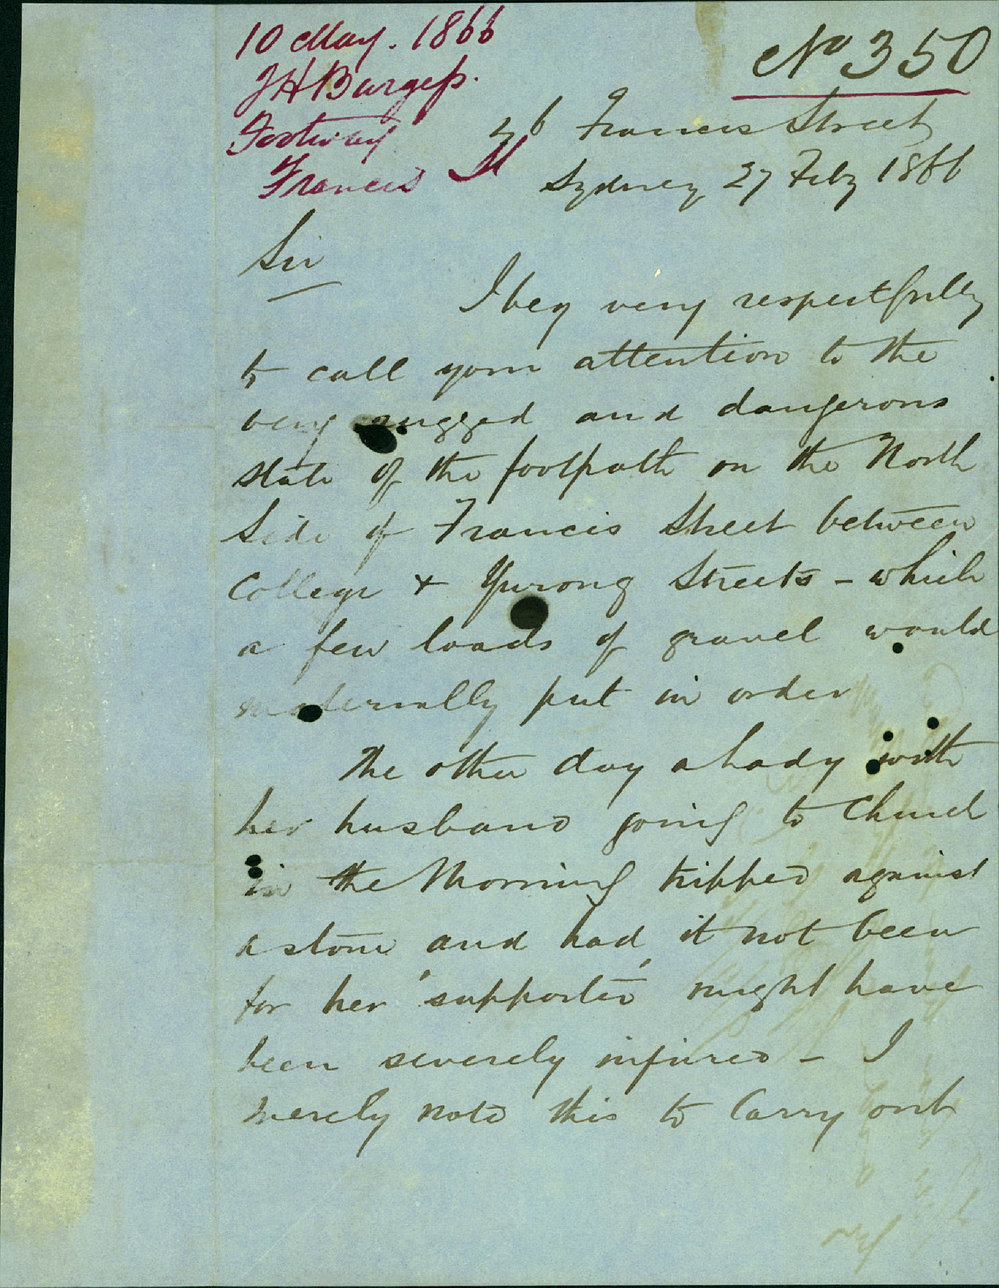 10 May. 1866
JH Burgess.
Footway
Francis St
No 350
Francis Street
Sydney 27 Feby 1866
Sir
I beg very respectfully
to call your attention to the
very rugged and dangerous
state of the footpath on the North
Side of Francis Street between
College & Yurong Streets - which
a few loads of gravel would
materially put in order
The other day a Lady with
her husband going to Church
in the Morning tripped against
a stone and had it not been
for her 'supporter' might have
been severely injured - I
merely note this to Carry out